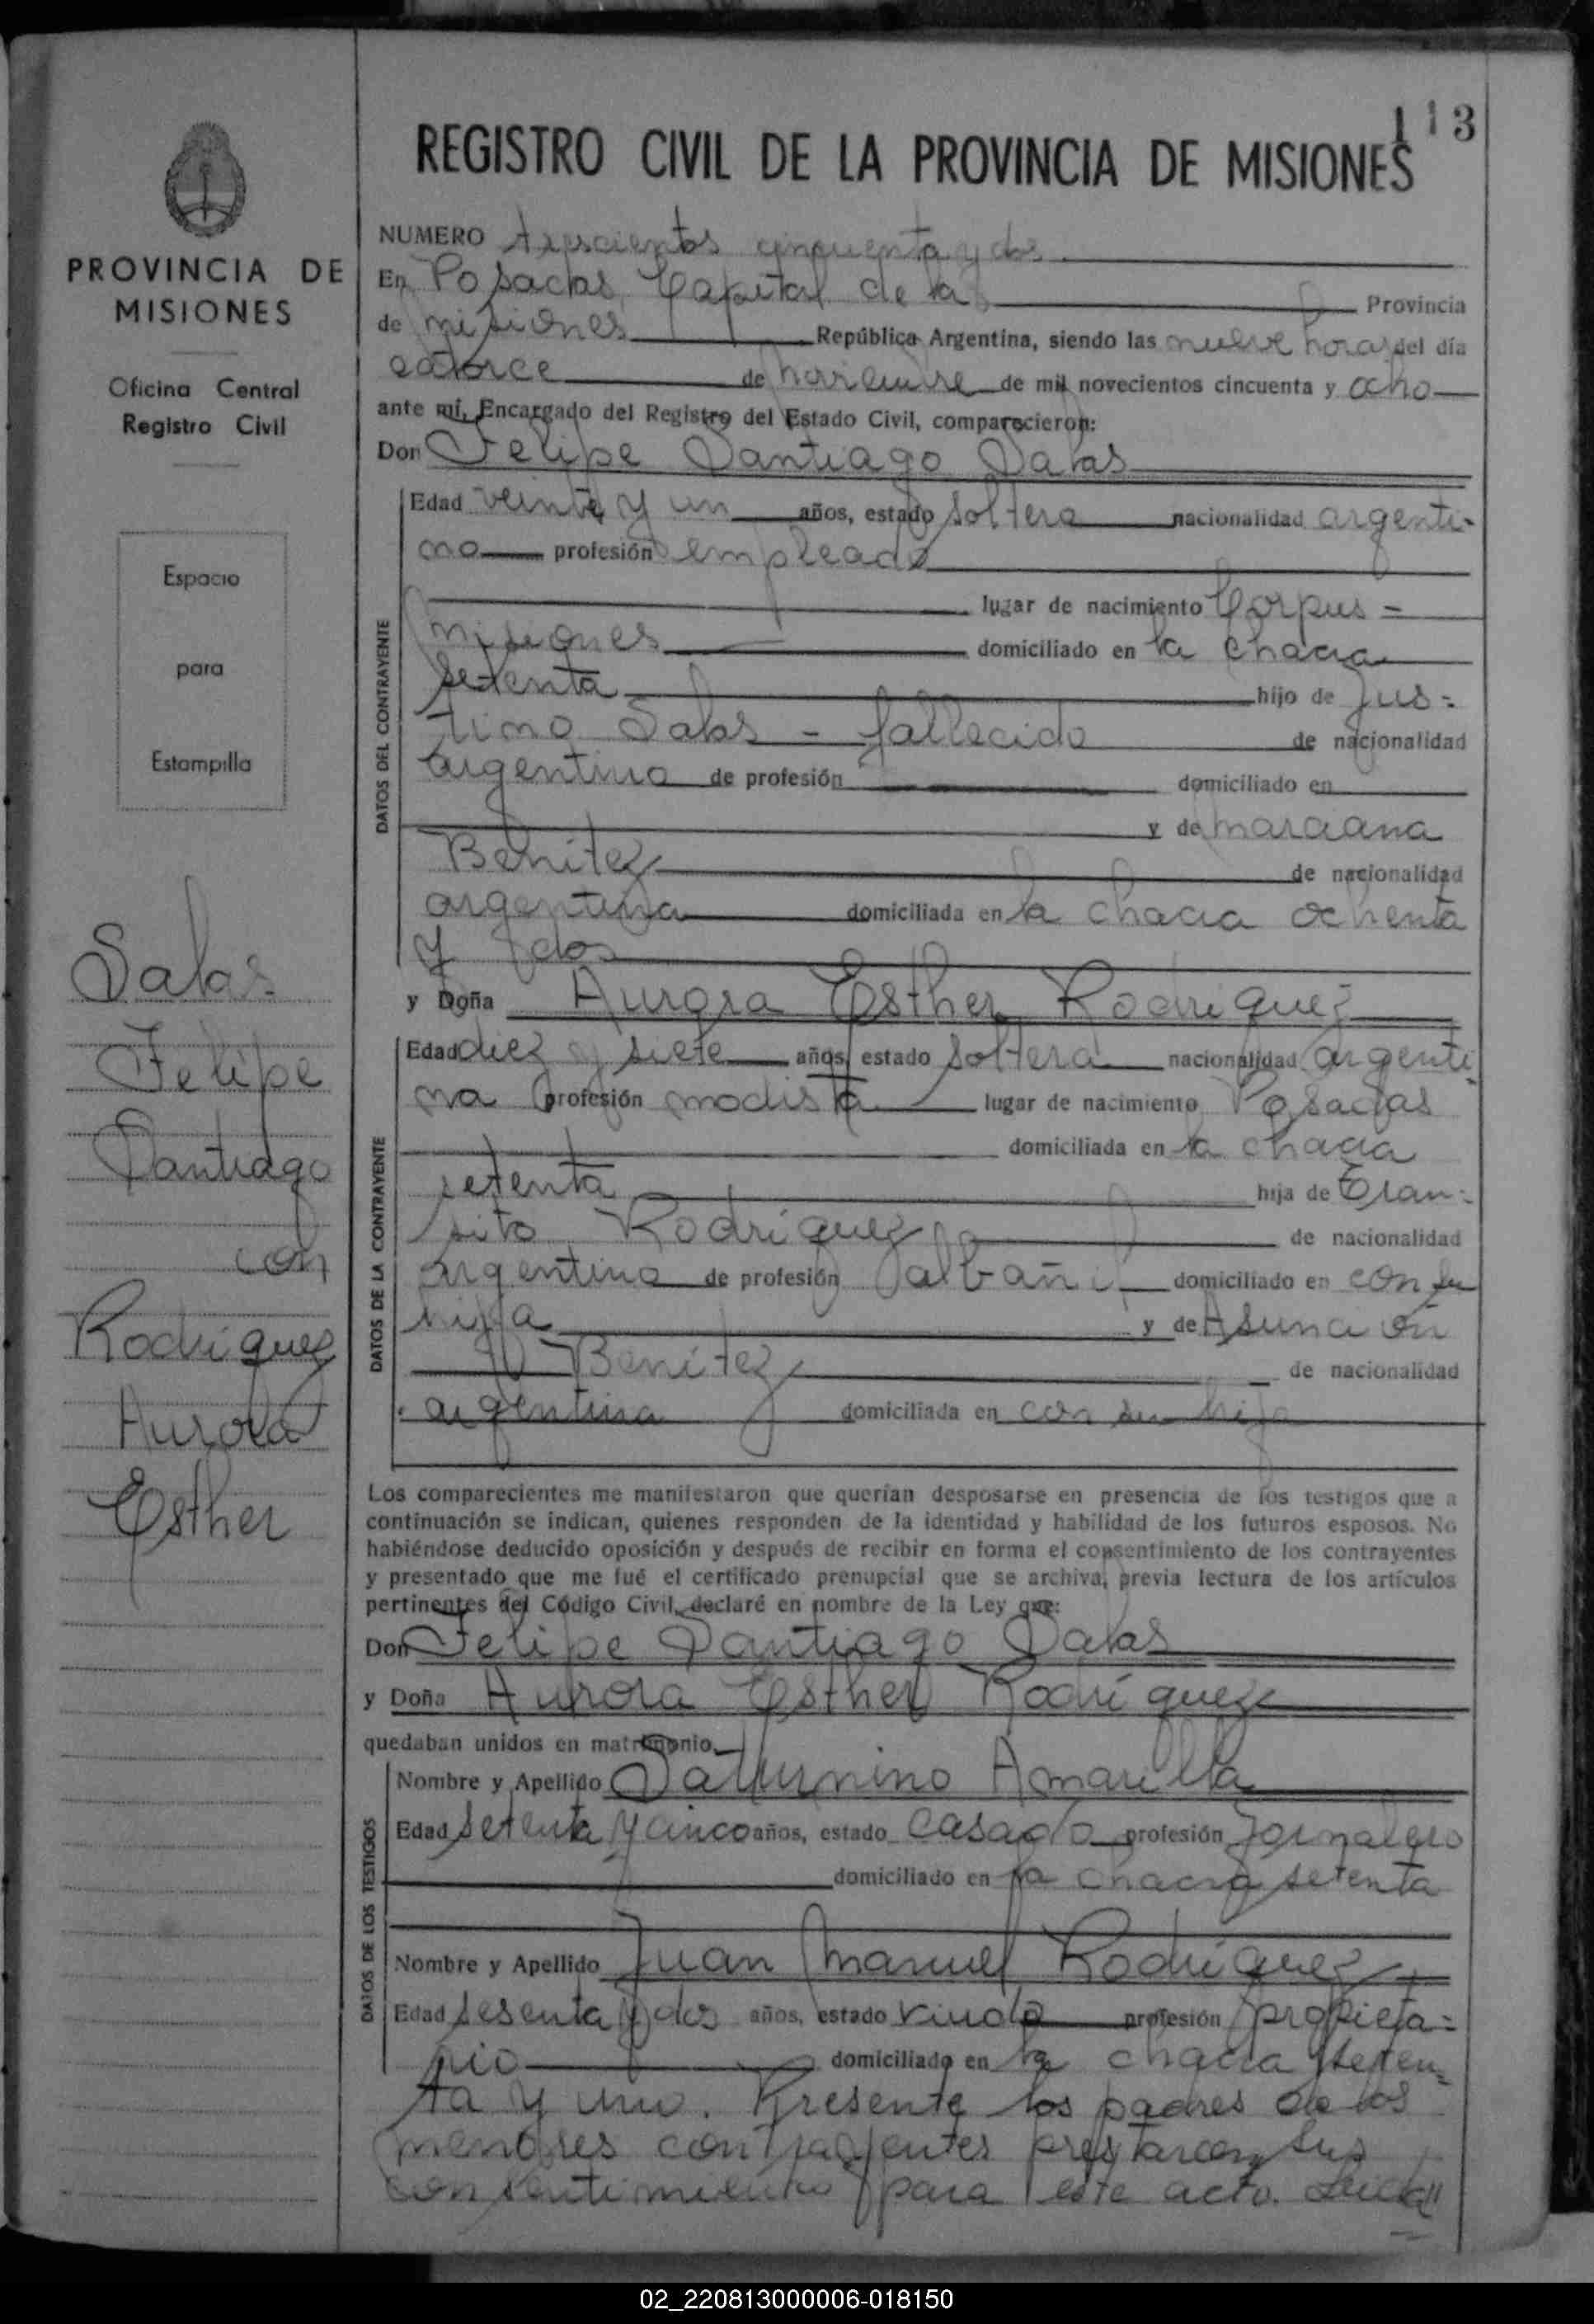 113
REGISTRO CIVIL DE LA PROVINCIA DE MISIONES
PROVINCIA DE
MISIONES
Oficina Central
Registro Civil
Espacio
para
Estampilla
Salas
Felipe
Santiago
con
Rodriguez
Aurora
Esther
NUMERO trescientos cincuenta y dos
En Posadas Capital de la Provincia
de misiones República Argentina, siendo las nueve horas del día
catorce de noviembre de mil novecientos cincuenta y ocho
ante mí, Encargado del Registro del Estado Civil, comparecieron:
Don Felipe Santiago Salas
DATOS DEL CONTRAYENTE
Edad veinte y un años, estado soltero nacionalidad argenti-
no profesión empleado
lugar de nacimiento Corpus =
misiones domiciliado en la chacra
setenta hijo de Jus=
tino Salas - fallecido de nacionalidad
argentino de profesión domiciliado en
y de
Benitez de nacionalidad
argentina domiciliada en la chacra ochenta
y dos
y Doña Aurora Esther Rodriguez
DATOS DE LA CONTRAYENTE
Edad diez y siete años, estado soltera nacionalidad argenti-
na profesión modista lugar de nacimiento Posadas
domiciliada en la chacra
setenta hija de Tran=
sito Rodriguez de nacionalidad
argentino de profesión albañil domiciliado en con su
hija y de Asunción
Benitez de nacionalidad
argentina domiciliada en con su hija
Los comparecientes me manifestaron que querían desposarse en presencia de los testigos que a
continuación se indican, quienes responden de la identidad y habilidad de los futuros esposos. No
habiéndose deducido oposición y después de recibir en forma el consentimiento de los contrayentes
y presentado que me fué el certificado prenupcial que se archiva, previa lectura de los artículos
pertinentes del Código Civil, declaré en nombre de la Ley que:
Don Felipe Santiago Salas
y Doña Aurora Esther Rodriguez
quedaban unidos en matrimonio.
DATOS DE LOS TESTIGOS
Nombre y Apellido Saturnino Amarilla
Edad setenta y cinco años, estado casado profesión Jornalero
domiciliado en la chacra setenta
Nombre y Apellido Juan Manuel Rodriguez
Edad sesenta y dos años, estado viudo profesión propieta=
rio domiciliado en la chacra seten=
ta y uno. Presente los padres de los
menores contrayentes prestaron sus
consentimiento para este acto. Leida
02_220813000006-018150